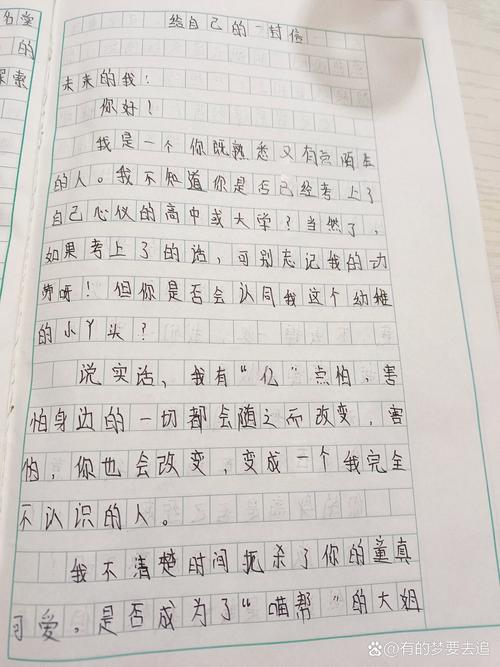 名堂
的
探索
给自己的一封信
未来的我：
你好！
我是一个你既熟悉又有点陌生
的人。我不知道你是否已经考上了
自己心仪的高中或大学？当然了，
如果考上了的话，可别忘记我的功
劳呀！但你是否会认同我这个幼稚
的小丫头？
说实话、我有“亿”点怕，害
怕身边的一切都会随之而改变，害
怕，你也会改变，变成一个我完全
不认识的人。
我不清楚时间扼杀了你的童真
可爱，是否成为了“喵帮”的大姐
@有的梦要去追